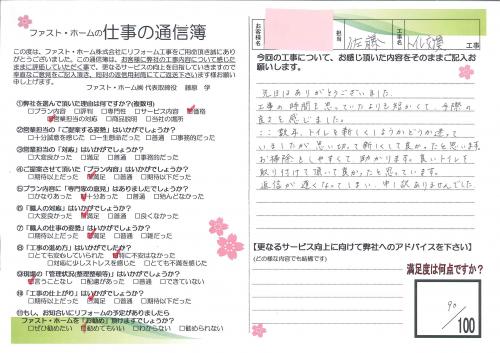 ファスト・ホームの仕事の通信簿
この度は、ファスト・ホーム株式会社にリフォーム工事をご用命頂き誠にあり
がとうございました。この通信簿は、お客様に弊社の工事内容について感じた
ままに評価していただく事で、更なるサービスの向上を目指していきますので
率直なご意見をご記入頂き、同封の返信用封筒にてご返送下さいます様お願い
申し上げます。
ファスト・ホーム㈱ 代表取締役 藤原 学
①弊社を選んで頂いた理由は何ですか?(複数可)
□ブランド □プラン内容 □サービス内容 □価格
□営業担当の対応 □商品説明 □当社の雰囲
②営業担当の「ご提案する姿勢」はいかがでしたか?
□十分誠意を感じた □一生懸命だった □普通 □事務的だった
③営業担当の「対応」はいかがでしたか?
□大変良かった □満足 □普通 □事務的だった
④ご提案させて頂いた「プラン内容」はいかがでしたか?
□期待以上だった □満足 □普通 □期待外れだった
⑤プラン内容に「専門家の意見」はありましたでしょうか?
□かなりあった □十分あった □普通 □殆んどなかった
⑥「職人の対応」はいかがでしたでしょうか?
□大変良かった □満足 □普通 □良くなかった
⑦「職人の仕事の姿勢」はいかがでしたか?
□期待以上だった □満足 □普通 □雑だった
⑧「工事の進め方」はいかがでしたか?
□とても安心していられた □特に不安はなかった
□対応に少しストレスを感じた □とても不満を感じた
⑨現場の「管理状況(整理整頓等)」はいかがでしたか?
□言うことなし □配慮があった □普通 □できていない
⑩「工事の仕上がり」はいかがでしたでしょうか?
□期待以上だった □満足 □普通 □期待外れだった
⑪もし、お知合いにリフォームの予定がありましたら
ファスト・ホームを「お勧め」頂けますでしょうか?
□ぜひ勧めたい □勧めてもいい □わからない □勧められない
お客様名
担当
佐藤
工事名
トイレ交換
工事
今回の工事について、お感じ頂いた内容をそのままご記入お
願いします。
先日はありがとうございました。
工事の時間も思っていたよりも短かくて、手際の
良さを感じました。
ここ数年、トイレを新しくしようかどうか迷って
いましたが思い切って新しくして良かったと思います。
お掃除もしやすくて助かります。良いトイレを
取り付けて頂いて良かったと思っています。
返信が遅くなってしまい、申し訳ありませんでした。
【更なるサービス向上に向けて弊社へのアドバイスを下さい】
(どの様な内容でも結構です)
満足度は何点ですか?
90
/100